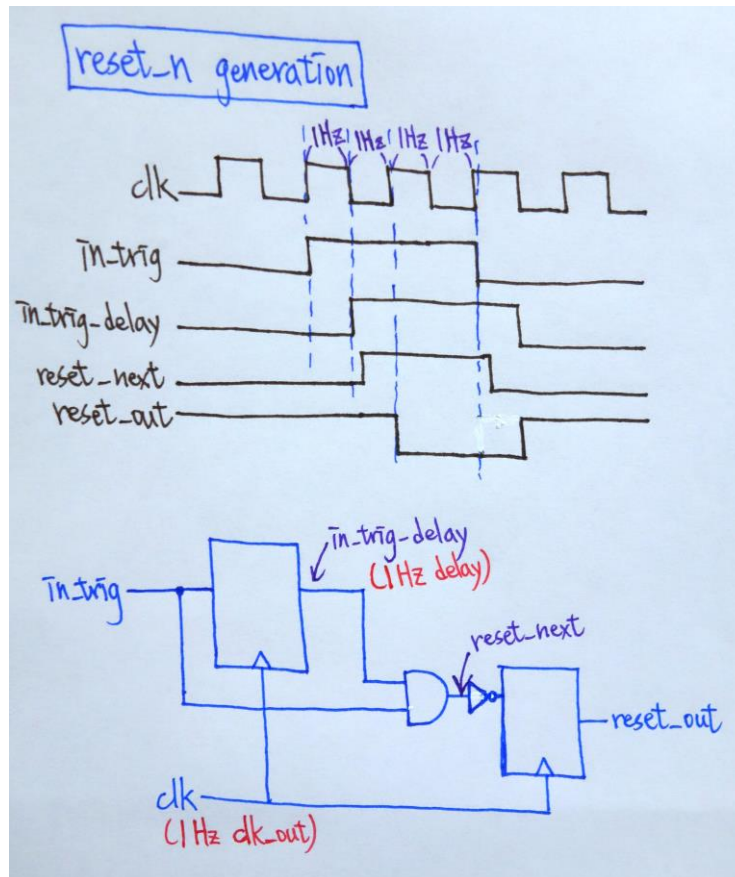 reset_n generation
1Hz 1Hz 1Hz 1Hz
clk
in_trig
in_trig_delay
reset_next
reset_out
in_trig_delay
(1Hz delay)
in_trig
reset_next
reset_out
clk
(1Hz clk_out)